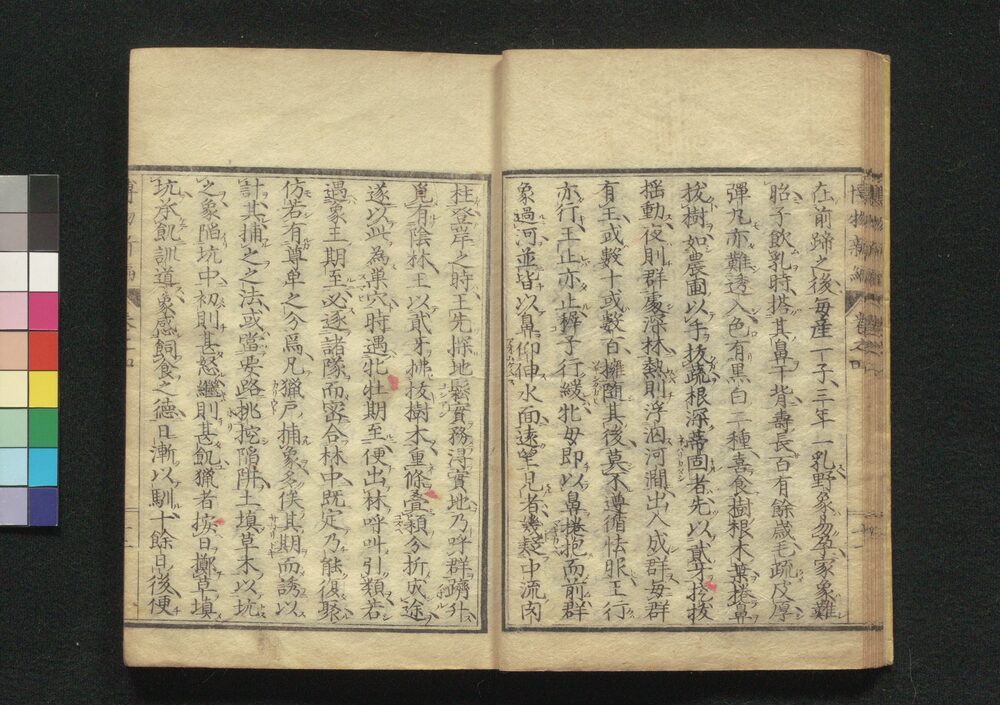 在前蹄之後毎產一子三年一乳野象易孕家象難
胎子飲乳時搭其鼻于背壽長百有餘歲毛疏皮厚
彈丸亦難透入色有黒白二種喜食樹根木葉捲鼻
拔樹如農圃以手拔蔬根深蒂固者先以貳牙挖掘
揺動夜則群處深林熱則浮泅河澗出入成群毎群
有王或數十或數百擁随其後莫不遵循怯服王行
亦行王止亦止稺子行緩牝母即以鼻捲抱而前群
象過河並皆以鼻仰伸水面遠望見者幾疑中流肉
柱登岸之時王先探地鬆實務得實地乃呼群躋升
覓有陰林王以貳牙拂拔樹木重條叠穎分折成途
遂以此為巢穴時遇牝牡期至便出林呼叫引類若
遇象王期至必逐諸隊而密合林中既定乃能復聚
仿若有尊卑之分焉凡獵户捕象多俟其期而誘以
計其捕之之法或當要路挑挖陷阱土填草木以坑
之象陷坑中初則甚怒繼則甚飢獵者按日擲草填
坑承飢訓道象感飼食之德日漸以馴十餘日後便
博物新編
巻之四